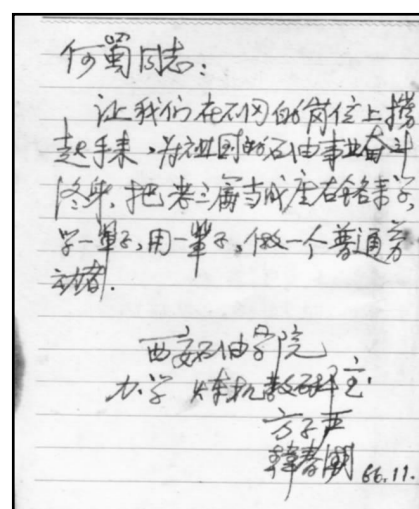 何蜀同志：
让我们在不同的岗位上携
起手来，为祖国的石油事业奋斗
终身，把老三篇当成座右铭来学，
学一辈子，用一辈子，做一个普通劳
动者．
西安石油学院
力学 炼机教研室
方子严
韩春潮 66.11.